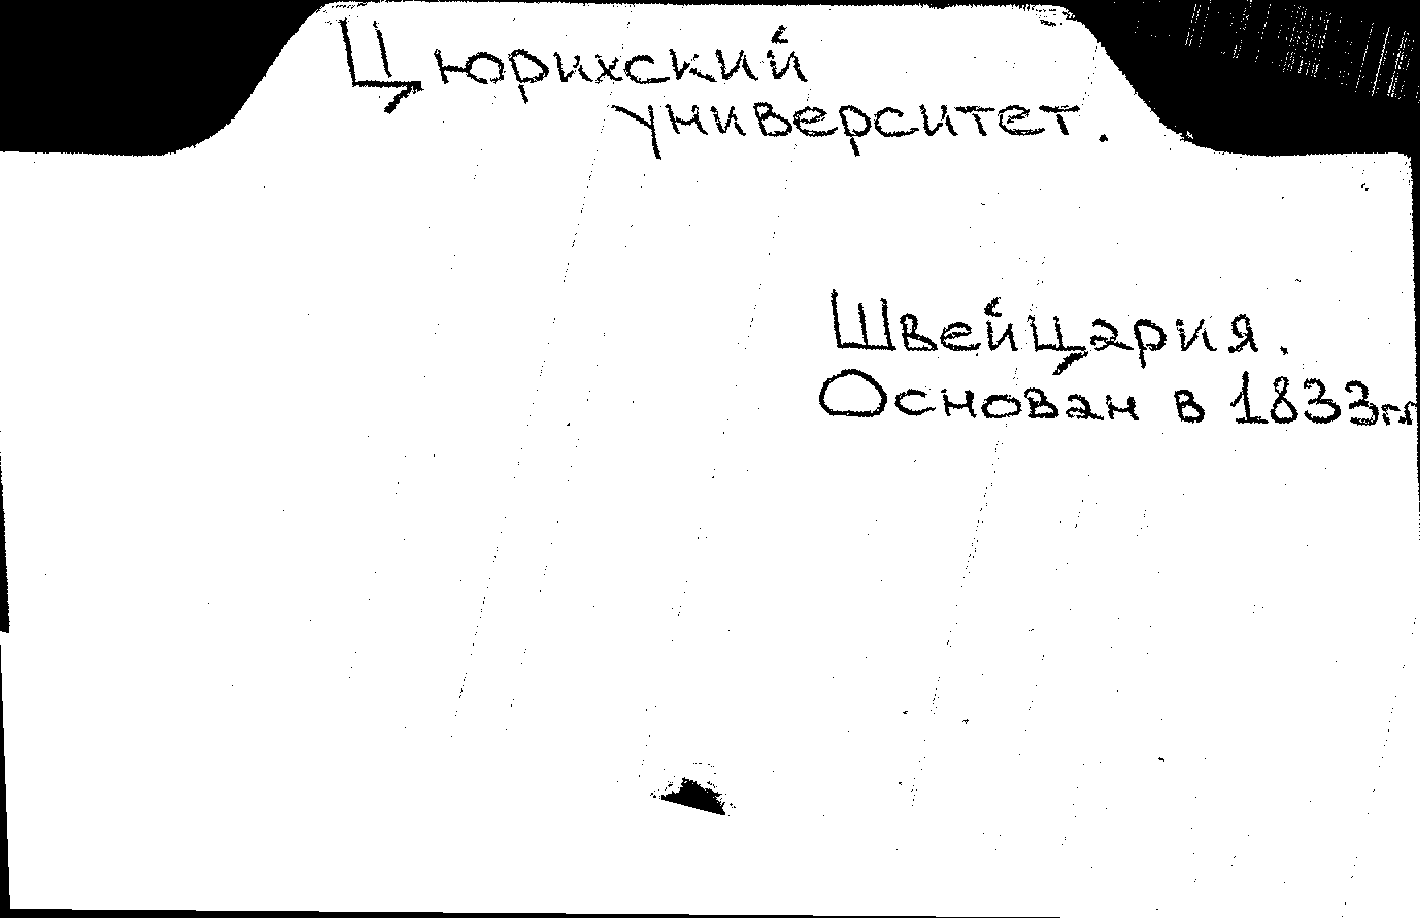 Цюрихский
университет.
Швейцария.
Основан в 1833гг